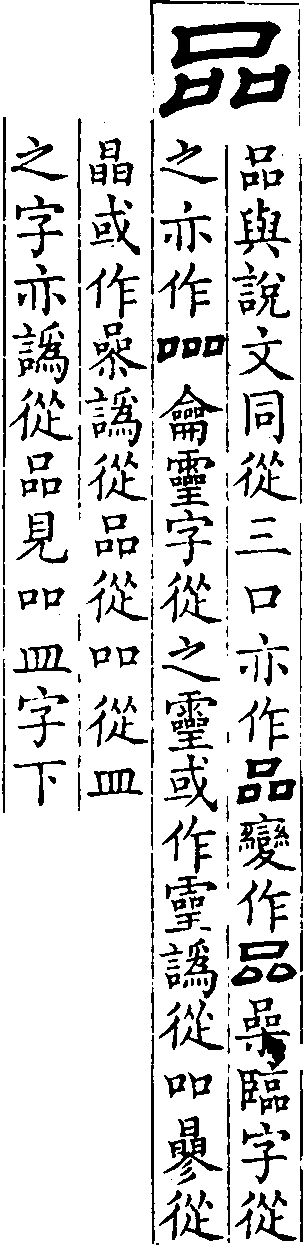 品
品與說文同從三口亦作品變作品喿臨字從
之亦作龠𤫊字從之𤫊或作譌從吅曑從
晶或作譌從品從吅從皿
之字亦譌從品見吅皿字下